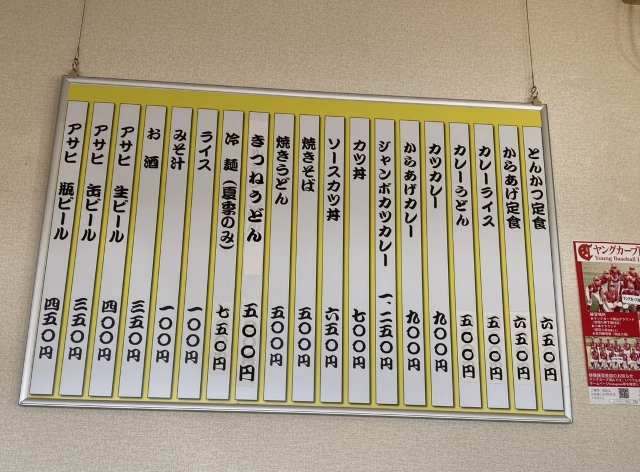 とんかつ定食 六五〇円
からあげ定食 六五〇円
カレーライス 五〇〇円
カレーうどん 五〇〇円
カツカレー 九〇〇円
からあげカレー 九〇〇円
ジャンボカツカレー 一、二五〇円
カツ丼 七〇〇円
ソースカツ丼 六五〇円
焼きそば 五〇〇円
焼きうどん 五〇〇円
きつねうどん 五〇〇円
冷麺（夏季のみ） 七五〇円
ライス 一〇〇円
みそ汁 一〇〇円
お酒 三五〇円
アサヒ 生ビール 四〇〇円
アサヒ 缶ビール 三五〇円
アサヒ 瓶ビール 四五〇円
ヤングカープ
Young Baseball